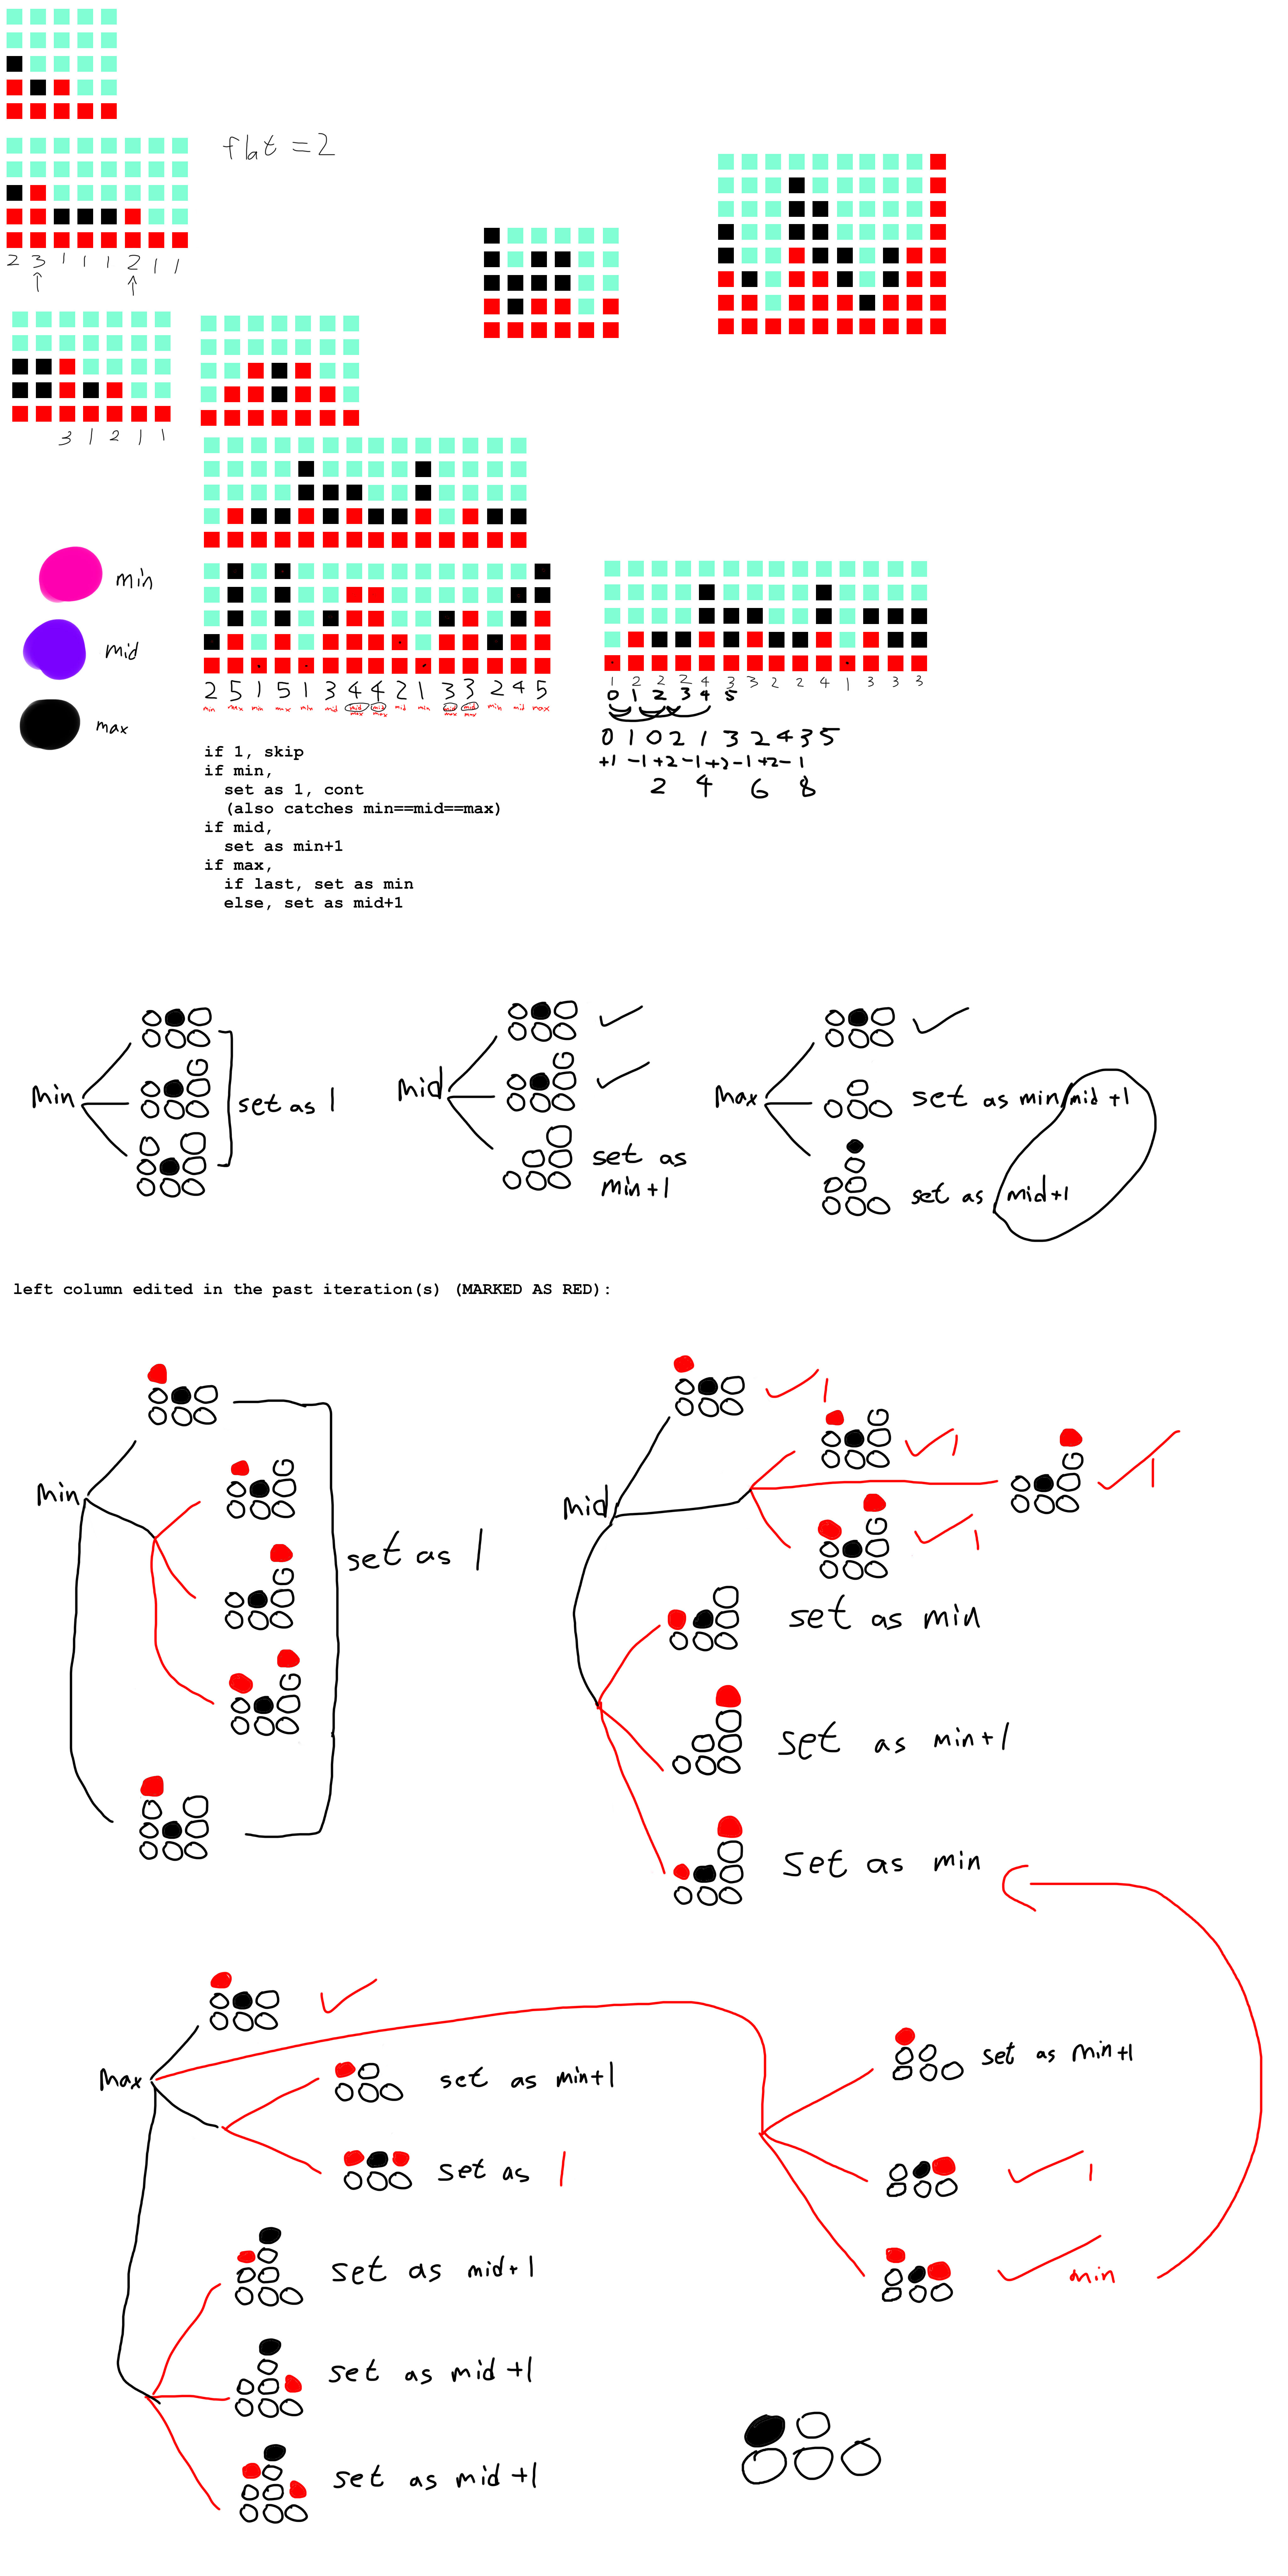 flat = 2
2 3 1 1 1 2 1 1
3 1 2 1 1
min
mid
max
2 5 1 5 1 3 4 4 2 1 3 3 2 4 5
min max min max min mid mid mid mid min mid mid min mid max
max max max max
1 2 2 2 4 3 3 2 2 4 1 3 3 3
0 1 2 3 4 5
0 1 0 2 1 3 2 4 3 5
+1 -1 +2 -1 +2 -1 +2 -1
2 4 6 8
if 1, skip
if min,
set as 1, cont
(also catches min==mid==max)
if mid,
set as min+1
if max,
if last, set as min
else, set as mid+1
min
G
set as 1
mid
G
set as
min+1
max
set as min/mid+1
set as mid+1
left column edited in the past iteration(s) (MARKED AS RED):
min
G
G
G
set as 1
mid
1
G
1
G
1
G
1
set as min
set as min+1
set as min
max
set as min+1
set as 1
set as mid+1
set as mid+1
set as mid+1
set as min+1
1
min